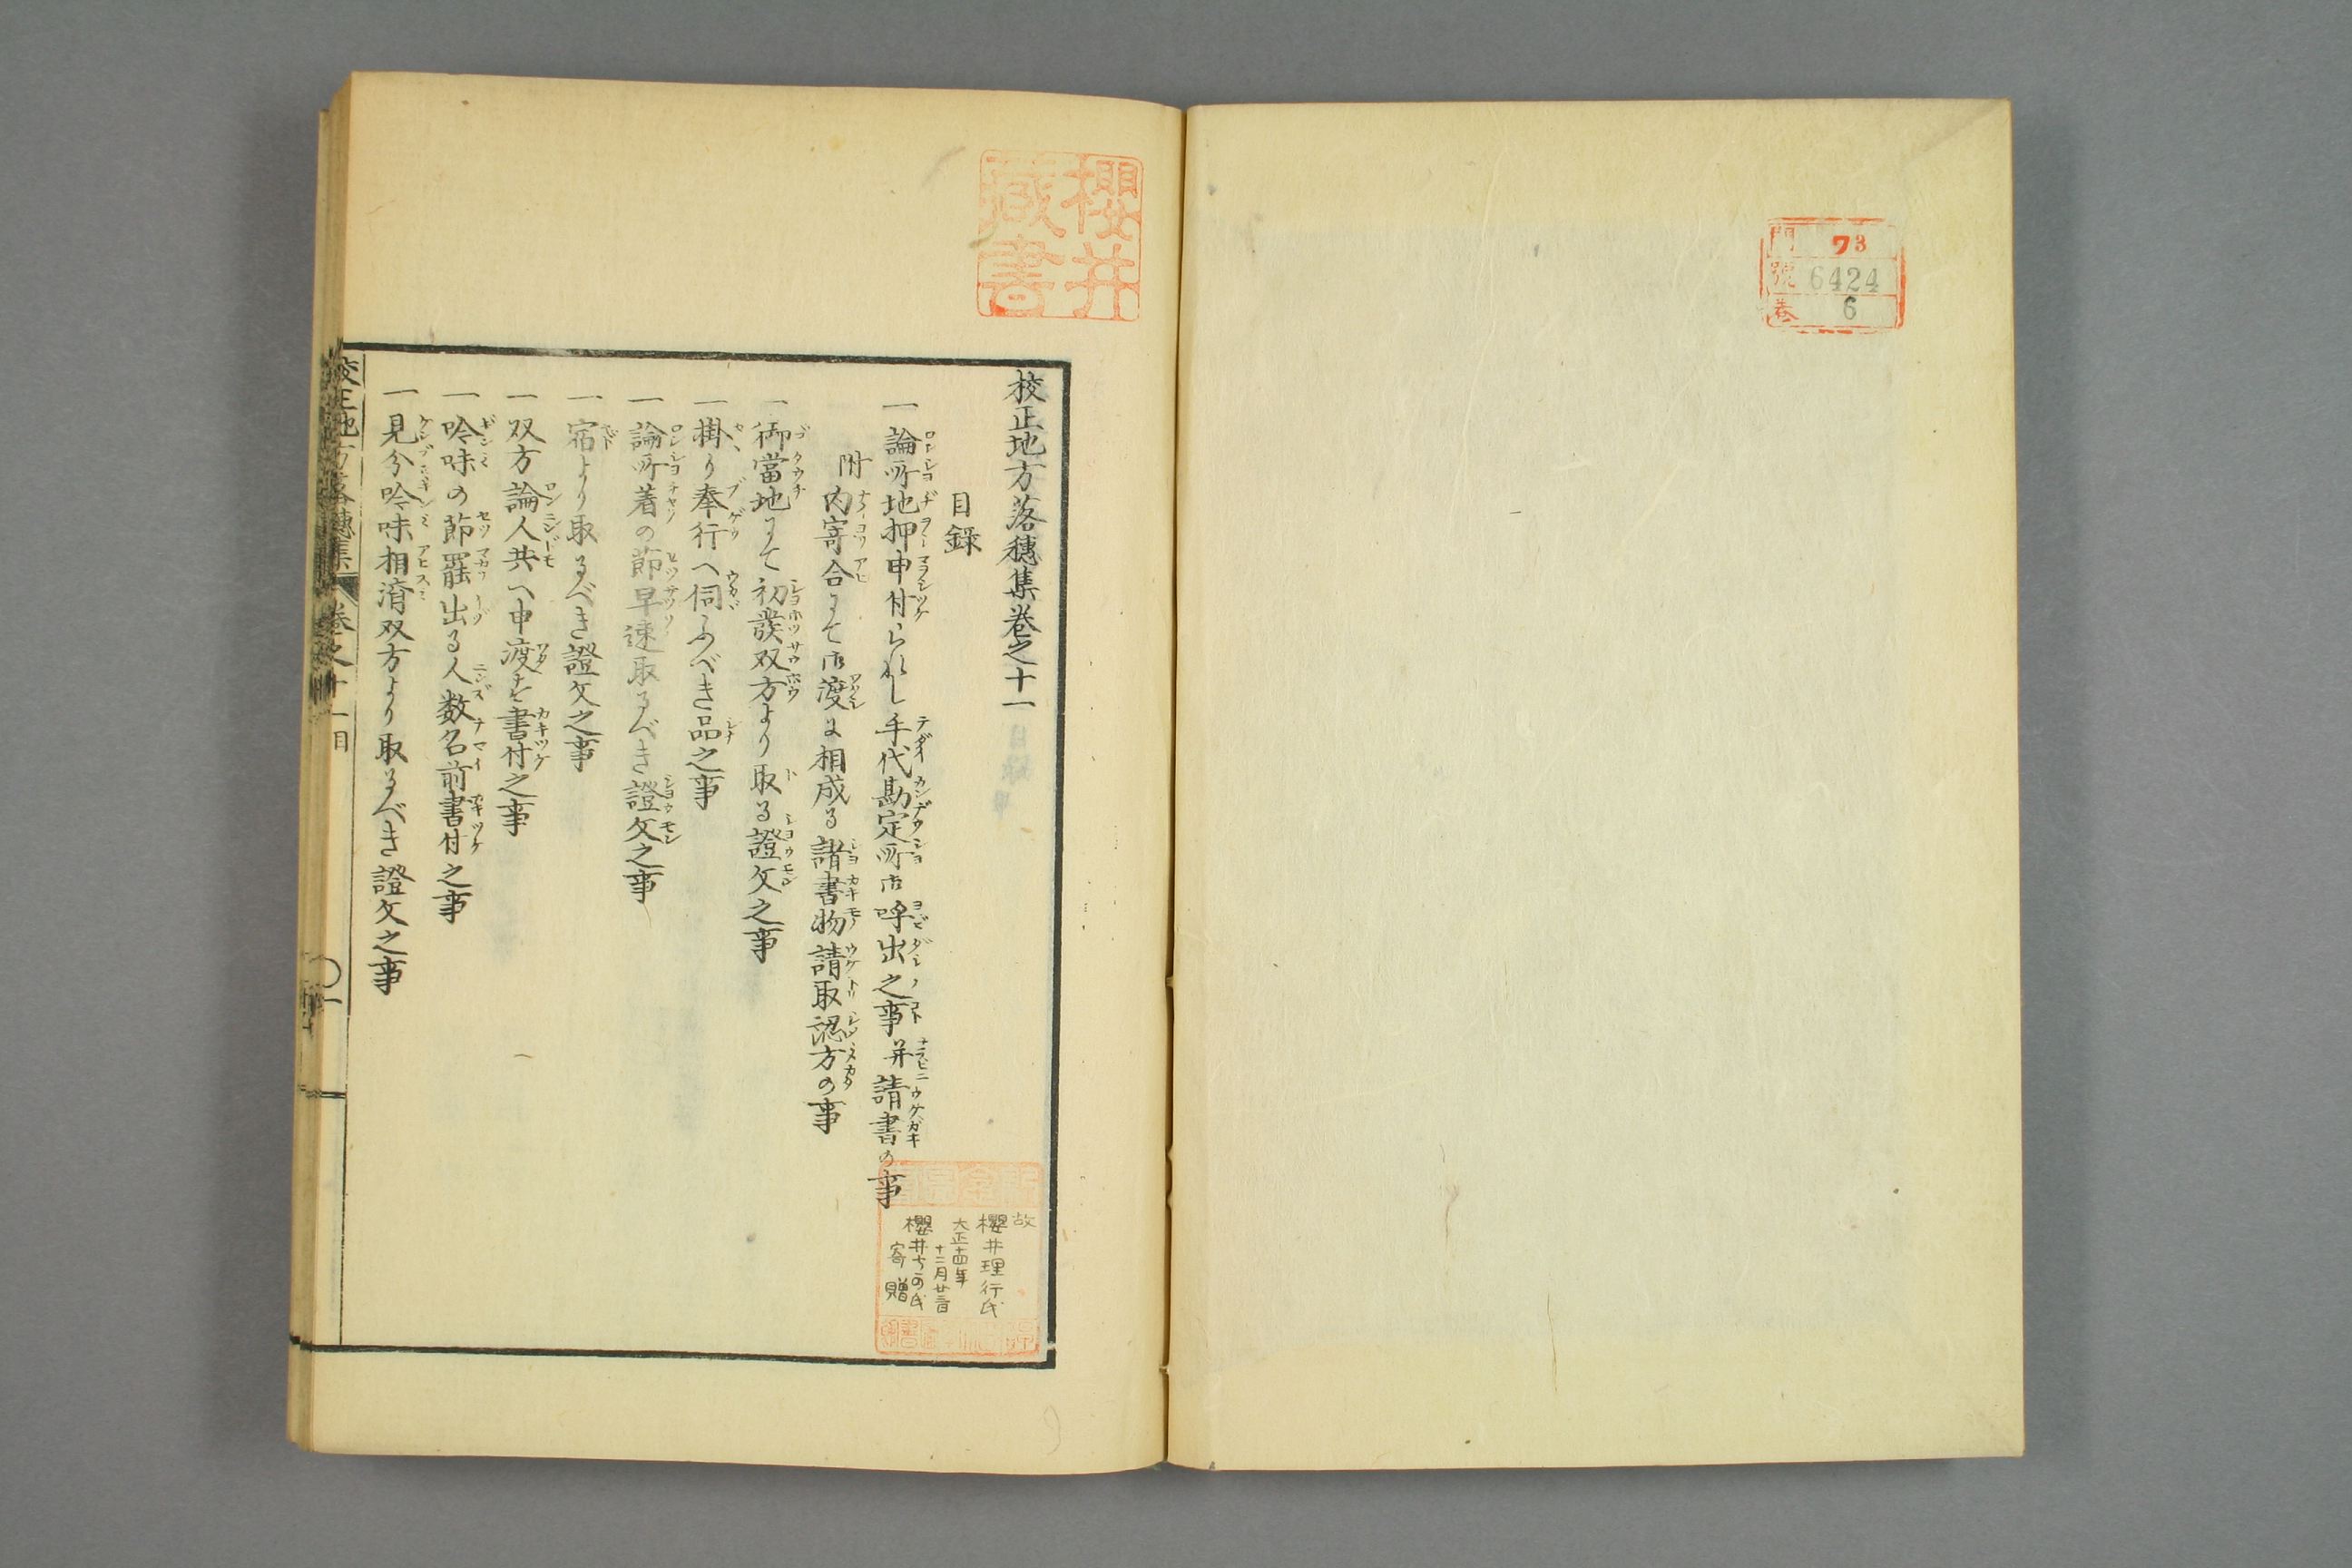 門 73
號 6424
巻 6
櫻井
藏書
校正地方落穗集巻之十一
目録
一論所地押申付られし手代勘定所御呼出之事并請書の事
附内寄合にて御渡に相成る諸書物請取認方の事
一御當地にて初發双方より取る證文之事
一掛り奉行へ伺ふべき品之事
一論所着の節早速取るべき證文之事
一宿より取るべき證文之事
一双方論人共へ申渡を書付之事
一吟味の節罷出る人数名前書付之事
一見分吟味相濟双方より取るべき證文之事
校正地方落穗集 巻之十一目 〇一
故
櫻井理行氏
大正十四年
十二月廿三日
寄贈